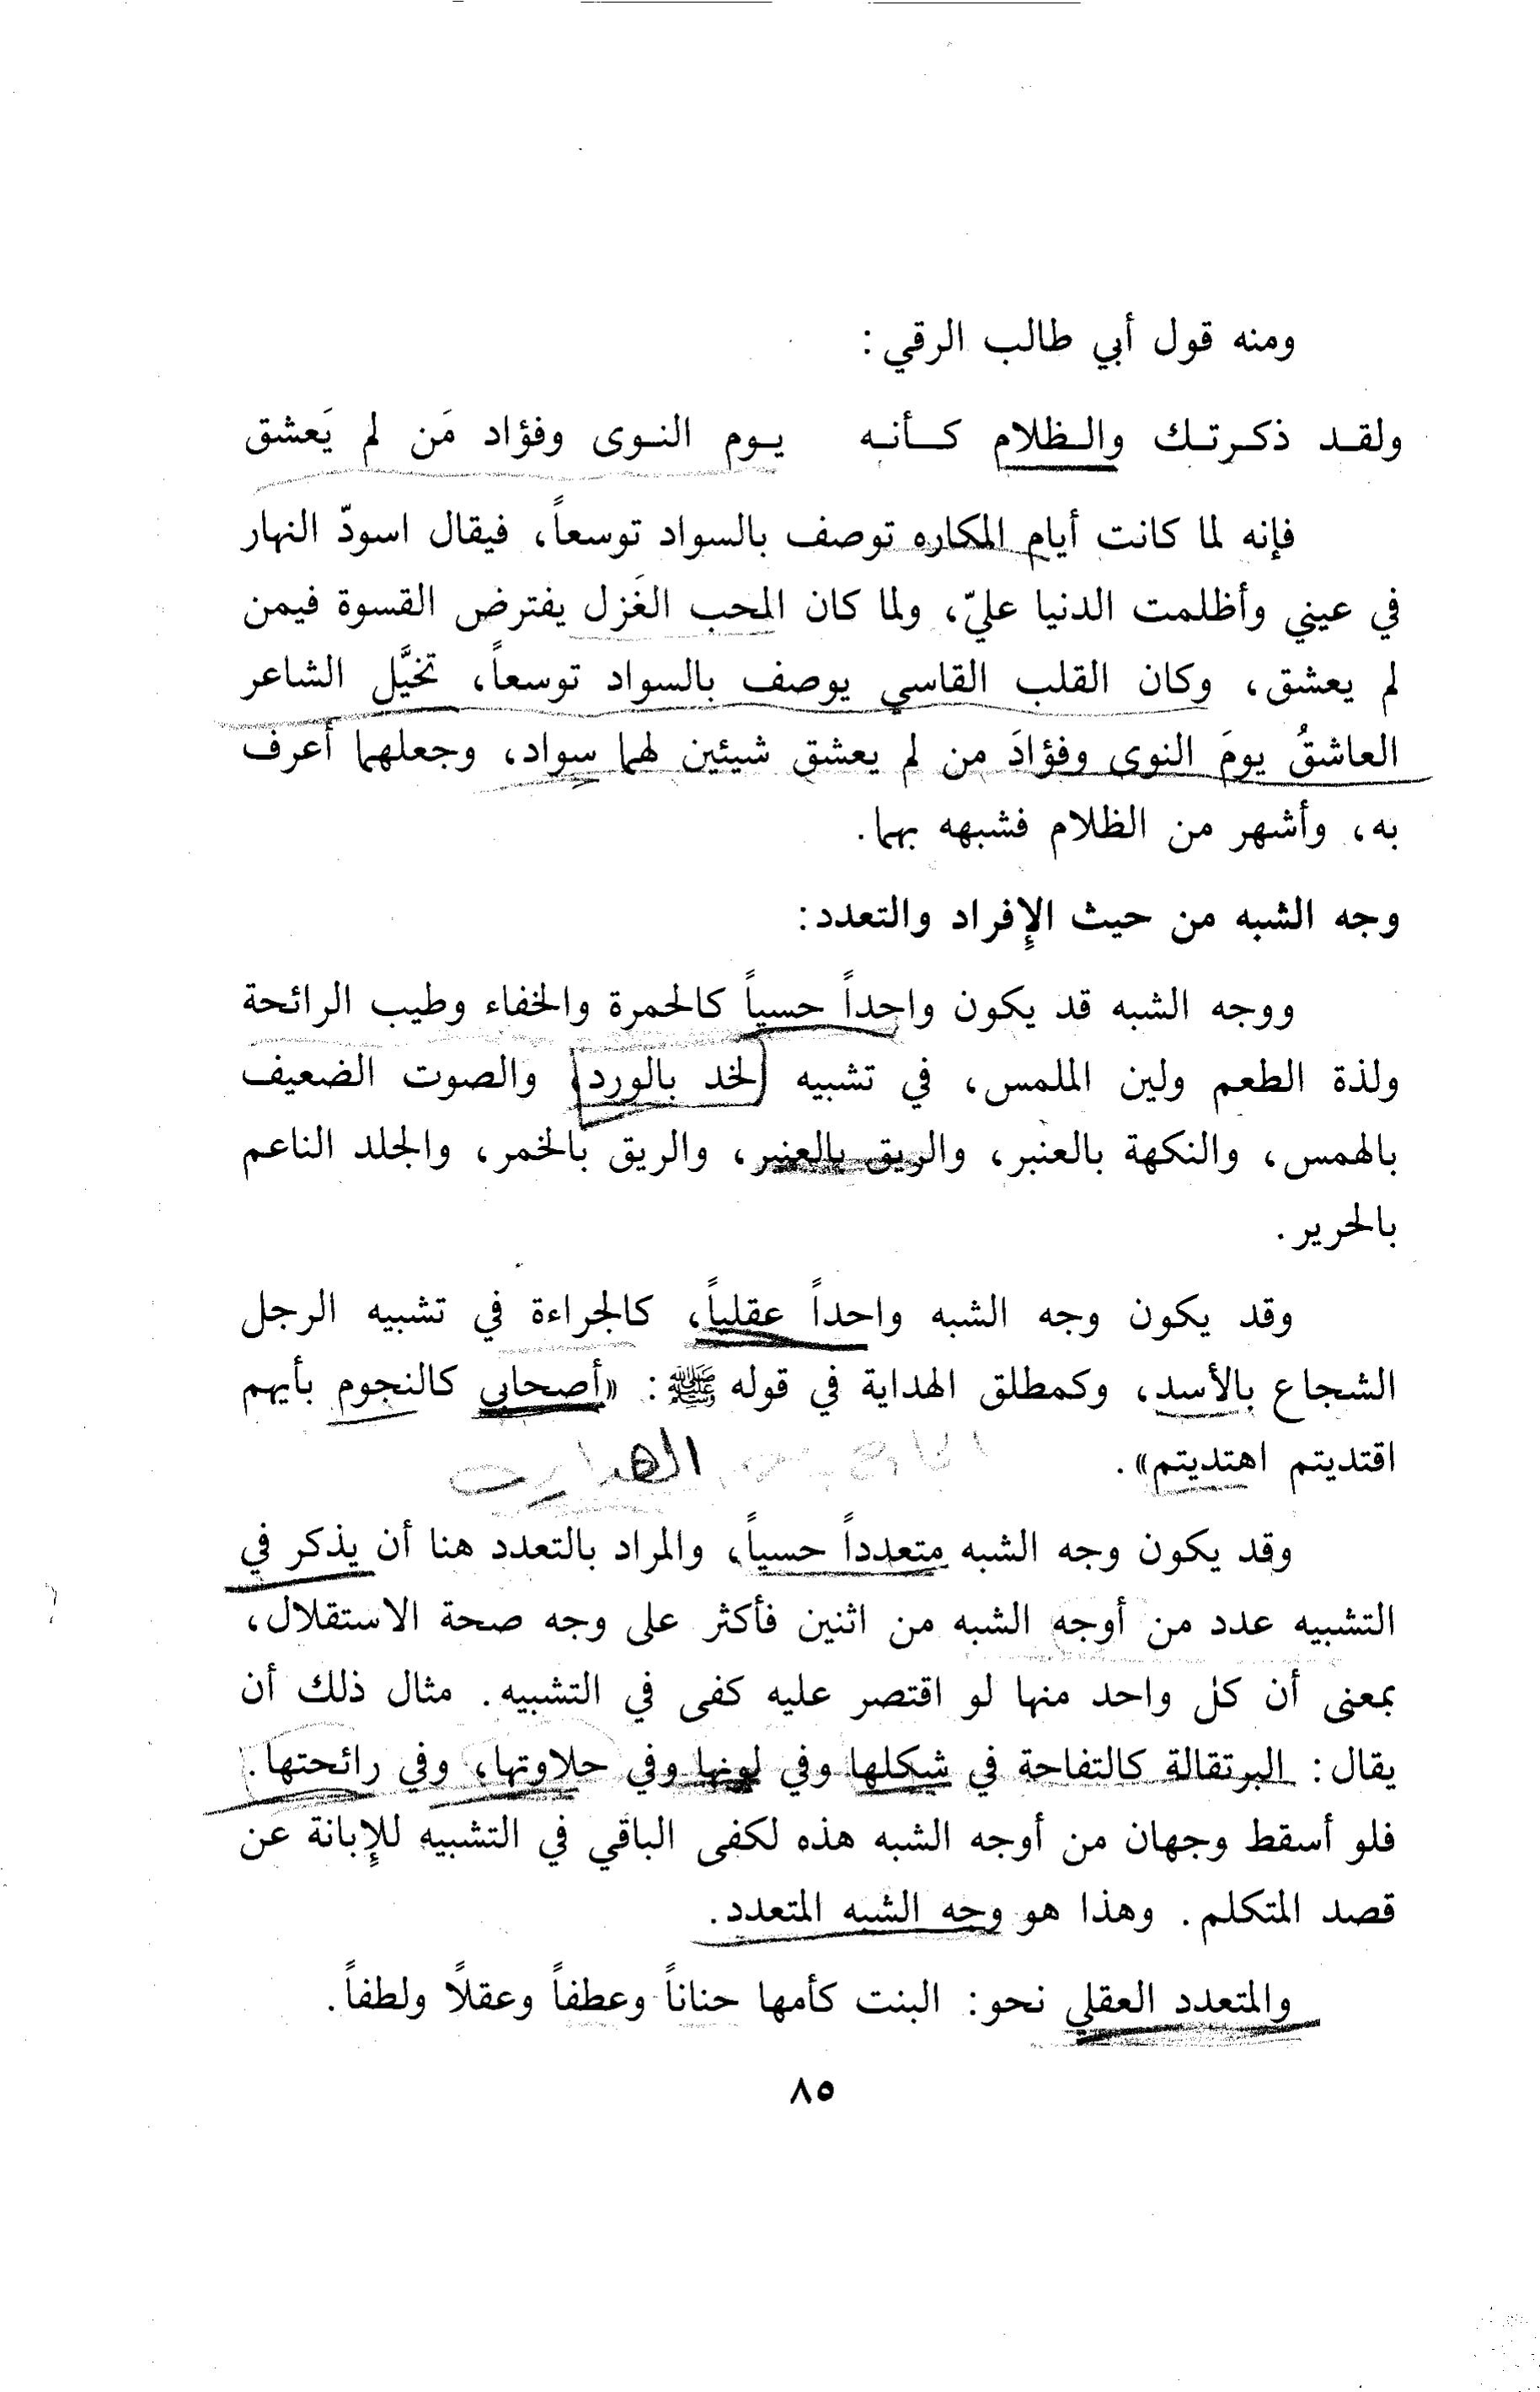 ومنه قول أبي طالب الرقي:
ولقـد ذكـرتـك والـظلام كـأنـه يـوم النـوى وفؤاد مَن لم يَعشق
فإنه لما كانت أيام المكاره توصف بالسواد توسعاً، فيقال اسودّ النهار
في عيني وأظلمت الدنيا عليّ، ولما كان المحب الغَزل يفترض القسوة فيمن
لم يعشق، وكان القلب القاسي يوصف بالسواد توسعاً، تخيَّل الشاعر
العاشقُ يومَ النوى وفؤادَ من لم يعشق شيئين لهما سواد، وجعلهما أعرف
به، وأشهر من الظلام فشبهه بهما.
وجه الشبه من حيث الإِفراد والتعدد:
ووجه الشبه قد يكون واحداً حسياً كالحمرة والخفاء وطيب الرائحة
ولذة الطعم ولين الملمس، في تشبيه الخد بالورد، والصوت الضعيف
بالهمس، والنكهة بالعنبر، والريق بالعنبر، والريق بالخمر، والجلد الناعم
بالحرير.
وقد يكون وجه الشبه واحداً عقلياً، كالجراءة في تشبيه الرجل
الشجاع بالأسد، وكمطلق الهداية في قوله ﷺ: «أصحابي كالنجوم بأيهم
اقتديتم اهتديتم». الهدايت
وقد يكون وجه الشبه متعدداً حسياً، والمراد بالتعدد هنا أن يذكر في
التشبيه عدد من أوجه الشبه من اثنين فأكثر على وجه صحة الاستقلال،
بمعنى أن كل واحد منها لو اقتصر عليه كفى في التشبيه. مثال ذلك أن
يقال: البرتقالة كالتفاحة في شكلها وفي لونها وفي حلاوتها، وفي رائحتها.
فلو أسقط وجهان من أوجه الشبه هذه لكفى الباقي في التشبيه للإِبانة عن
قصد المتكلم. وهذا هو وجه الشبه المتعدد.
والمتعدد العقلي نحو: البنت كأمها حناناً وعطفاً وعقلًا ولطفاً.
٨٥